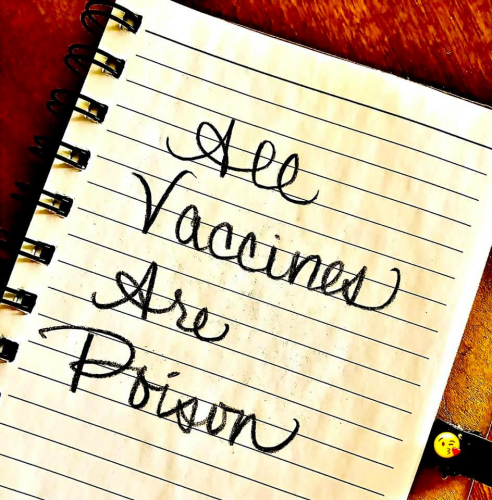 All
Vaccines
Are
Poison